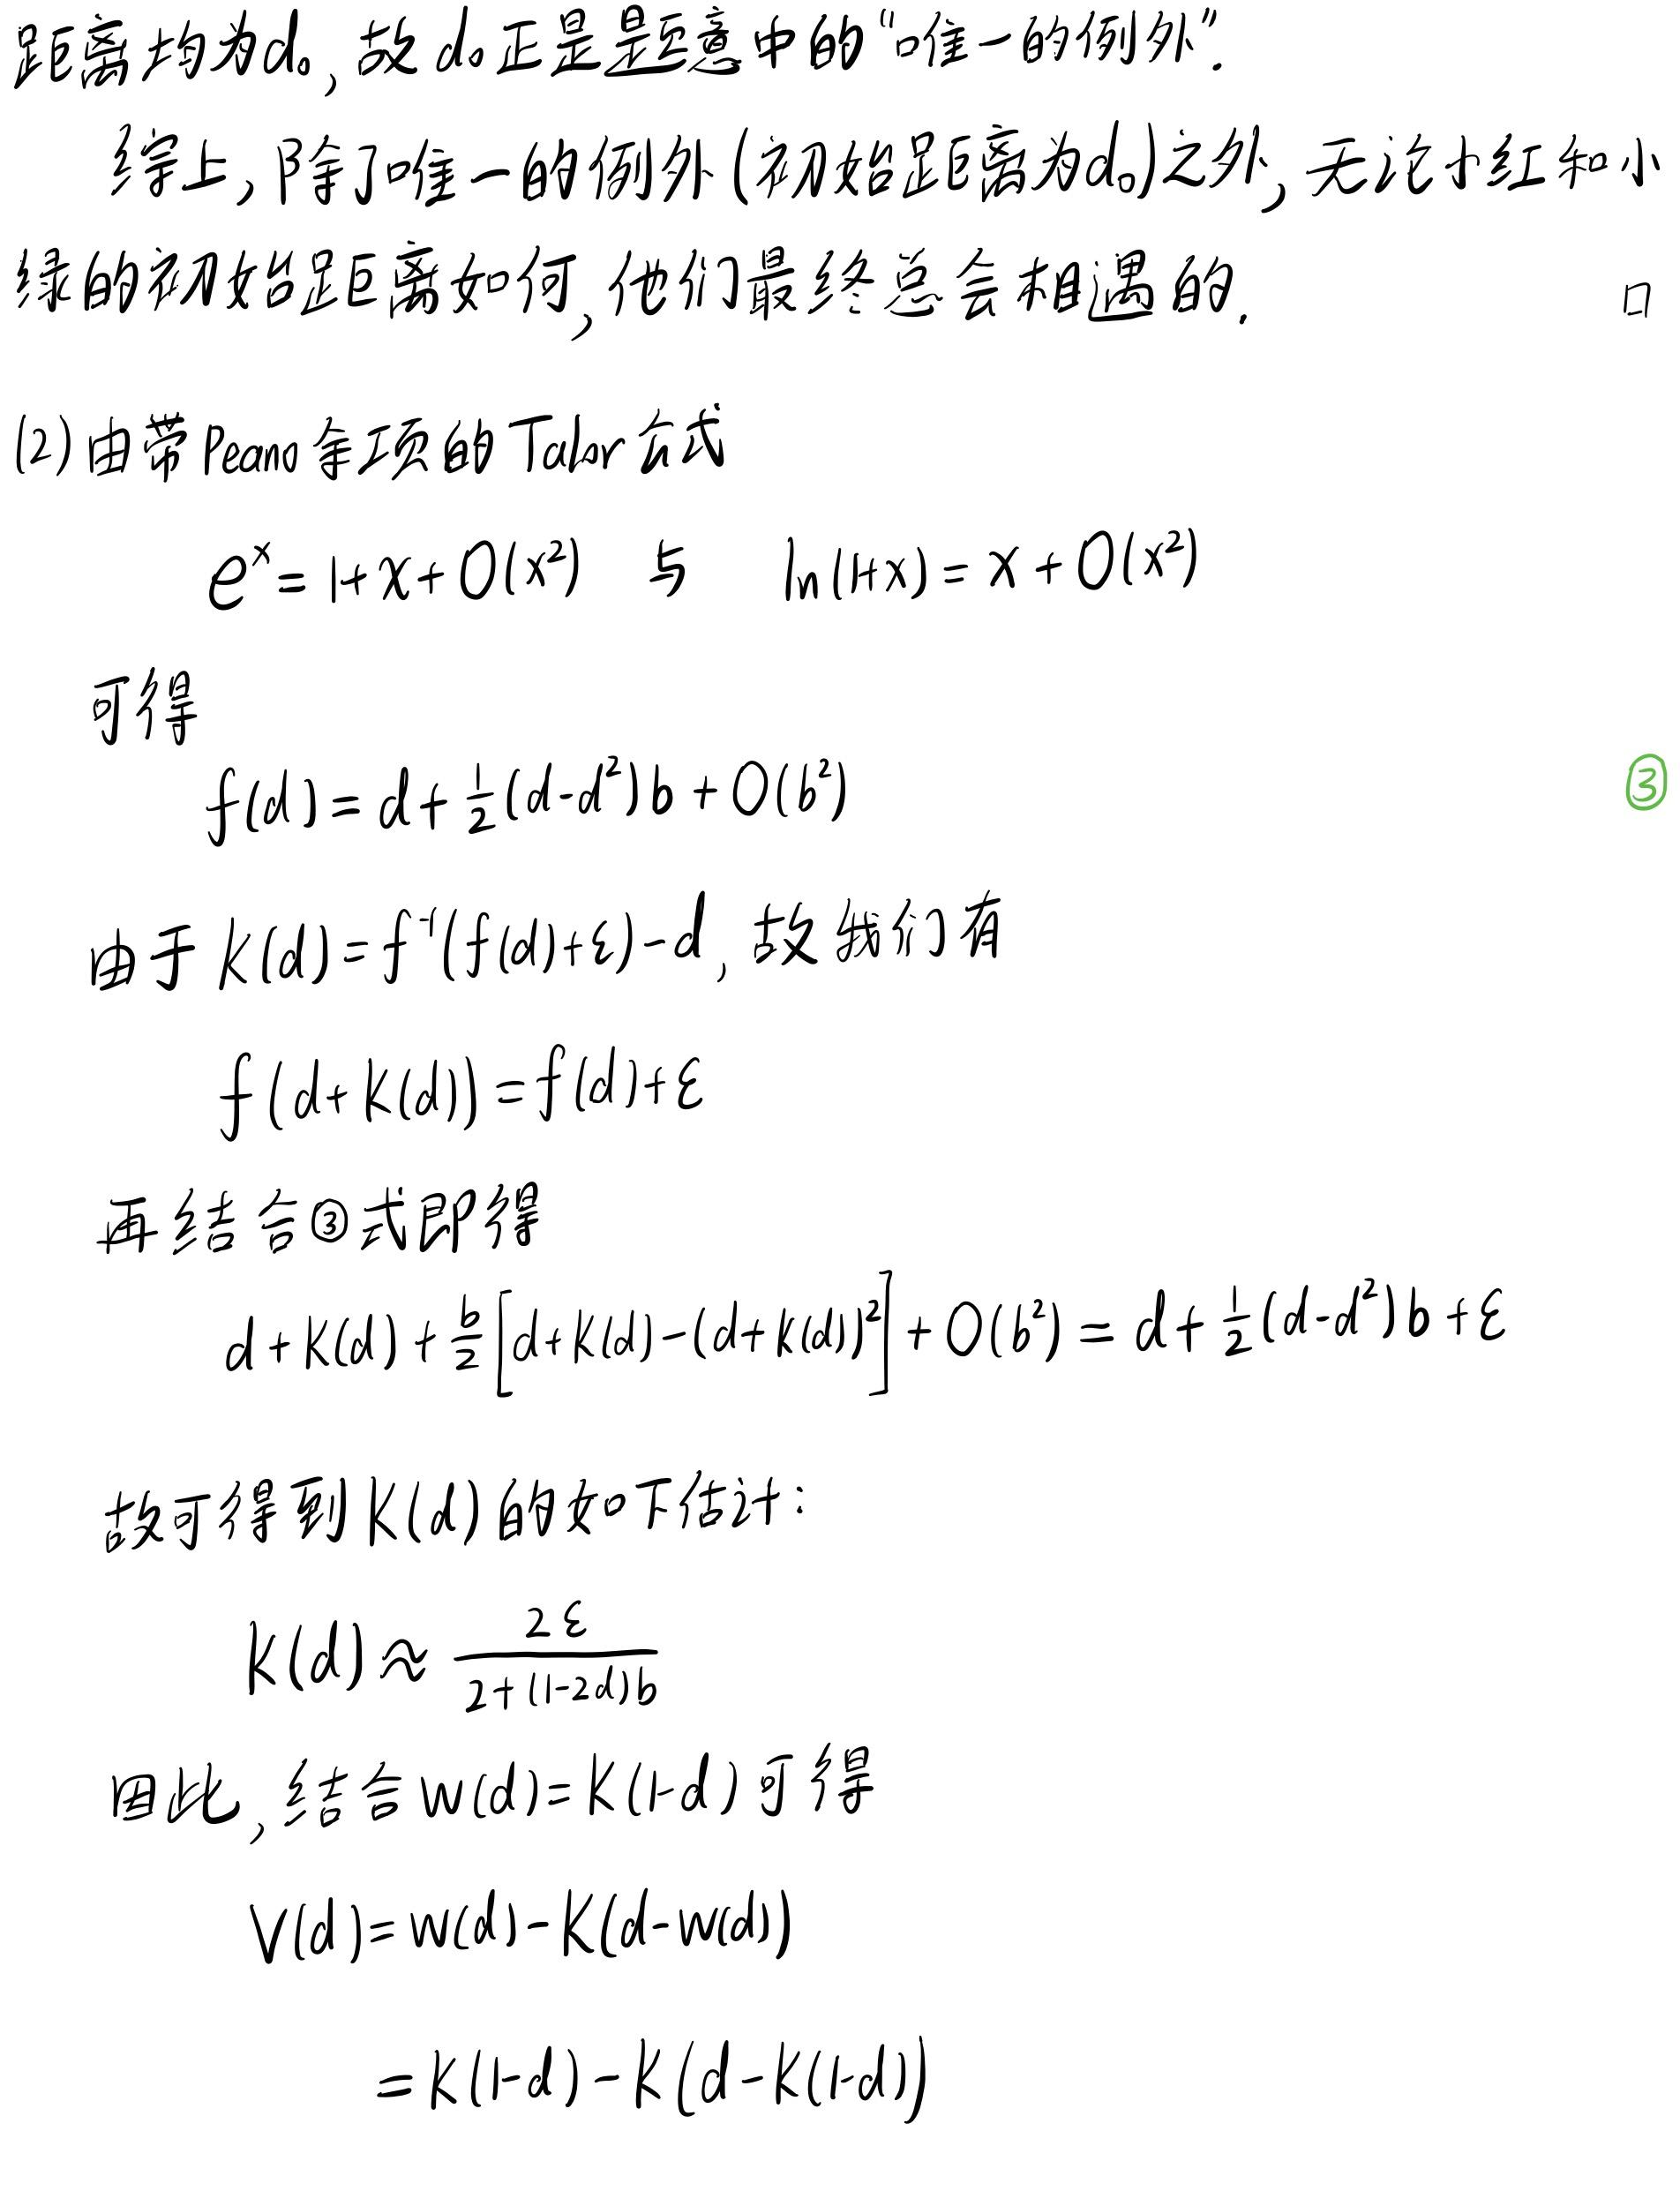 距离均为d₀,故d₀正是题意中的“唯一的例外”.
综上,除了唯一的例外(初始距离为d₀)之外,无论小红和小
绿的初始距离如何,他们最终总会相遇的. □
(2)由带Peano余项的Talor公式
eˣ=1+x+O(x²) 与 ln(1+x)=x+O(x²)
可得
f(d)=d+½(d-d²)b+O(b²) ③
由于K(d)=f⁻¹(f(d)+ε)-d,故我们有
f(d+K(d))=f(d)+ε
再结合③式即得
d+K(d)+b/2[d+K(d)-(d+K(d))²]+O(b²)=d+½(d-d²)b+ε
故可得到K(d)的如下估计:
K(d)≈2ε/(2+(1-2d)b)
因此,结合w(d)=K(1-d)可得
V(d)=w(d)-K(d-w(d))
=K(1-d)-K(d-K(1-d))